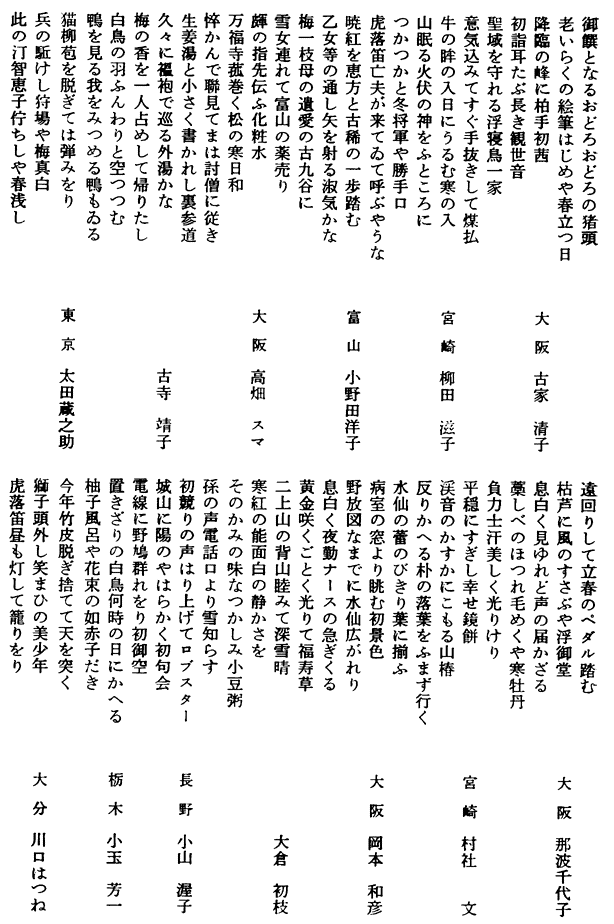 御饌となるおどろおどろの猪頭
老いらくの絵筆はじめや春立つ日
降臨の峰に柏手初茜　大阪　古家清子
初詣耳たぶ長き観世音
聖域を守れる浮寝鳥一家
意気込みてすぐ手抜きして煤払
牛の眸の入日にうるむ寒の入　宮崎　柳田滋子
山眠る火伏の神をふところに
つかつかと冬将軍や勝手口
虎落笛亡夫が来てゐて呼ぶやうな
暁紅を恵方と古稀の一歩踏む　富山　小野田洋子
乙女等の通し矢を射る淑気かな
梅一枝母の遺愛の古九谷に
雪女連れて富山の薬売り
皹の指先伝ふ化粧水　大阪　高畑スマ
万福寺菰巻く松の寒日和
悴かんで聯見てまは討僧に従き
生姜湯と小さく書かれし裏参道
久々に褞袍で巡る外湯かな　古寺靖子
梅の香を一人占めして帰りたし
白鳥の羽ふんわりと空つつむ
鴨を見る我をみつめる鴨もゐる
猫柳苞を脱ぎては弾みをり　東京　太田蔵之助
兵の駈けし狩場や梅真白
此の汀智恵子佇ちしや春浅し
遠回りして立春のペダル踏む
枯芦に風のすさぶや浮御堂　大阪　那波千代子
息白く見ゆれど声の届かざる
藁しべのほつれ毛めくや寒牡丹
負力士汗美しく光りけり
平穏にすぎし幸せ鏡餅　宮崎　村社文
渓音のかすかにこもる山椿
反りかへる朴の落葉をふまず行く
水仙の蕾のびきり葉に揃ふ
病室の窓より眺む初景色　大阪　岡本和彦
野放図なまでに水仙広がれり
息白く夜勤ナースの急ぎくる
黄金咲くごとく光りて福寿草
二上山の背山睦みて深雪晴　大倉初枝
寒紅の能面白の静かさを
そのかみの味なつかしみ小豆粥
孫の声電話口より雪知らす
初競りの声はり上げてロブスター　長野　小山渥子
城山に陽のやはらかく初句会
電線に野鳩群れをり初御空
置きざりの白鳥何時の日にかへる　栃木　小玉芳一
柚子風呂や花束の如赤子だき
今年竹皮脱ぎ捨てて天を突く
獅子頭外し笑まひの美少年　大分　川口はつね
虎落笛昼も灯して籠りをり